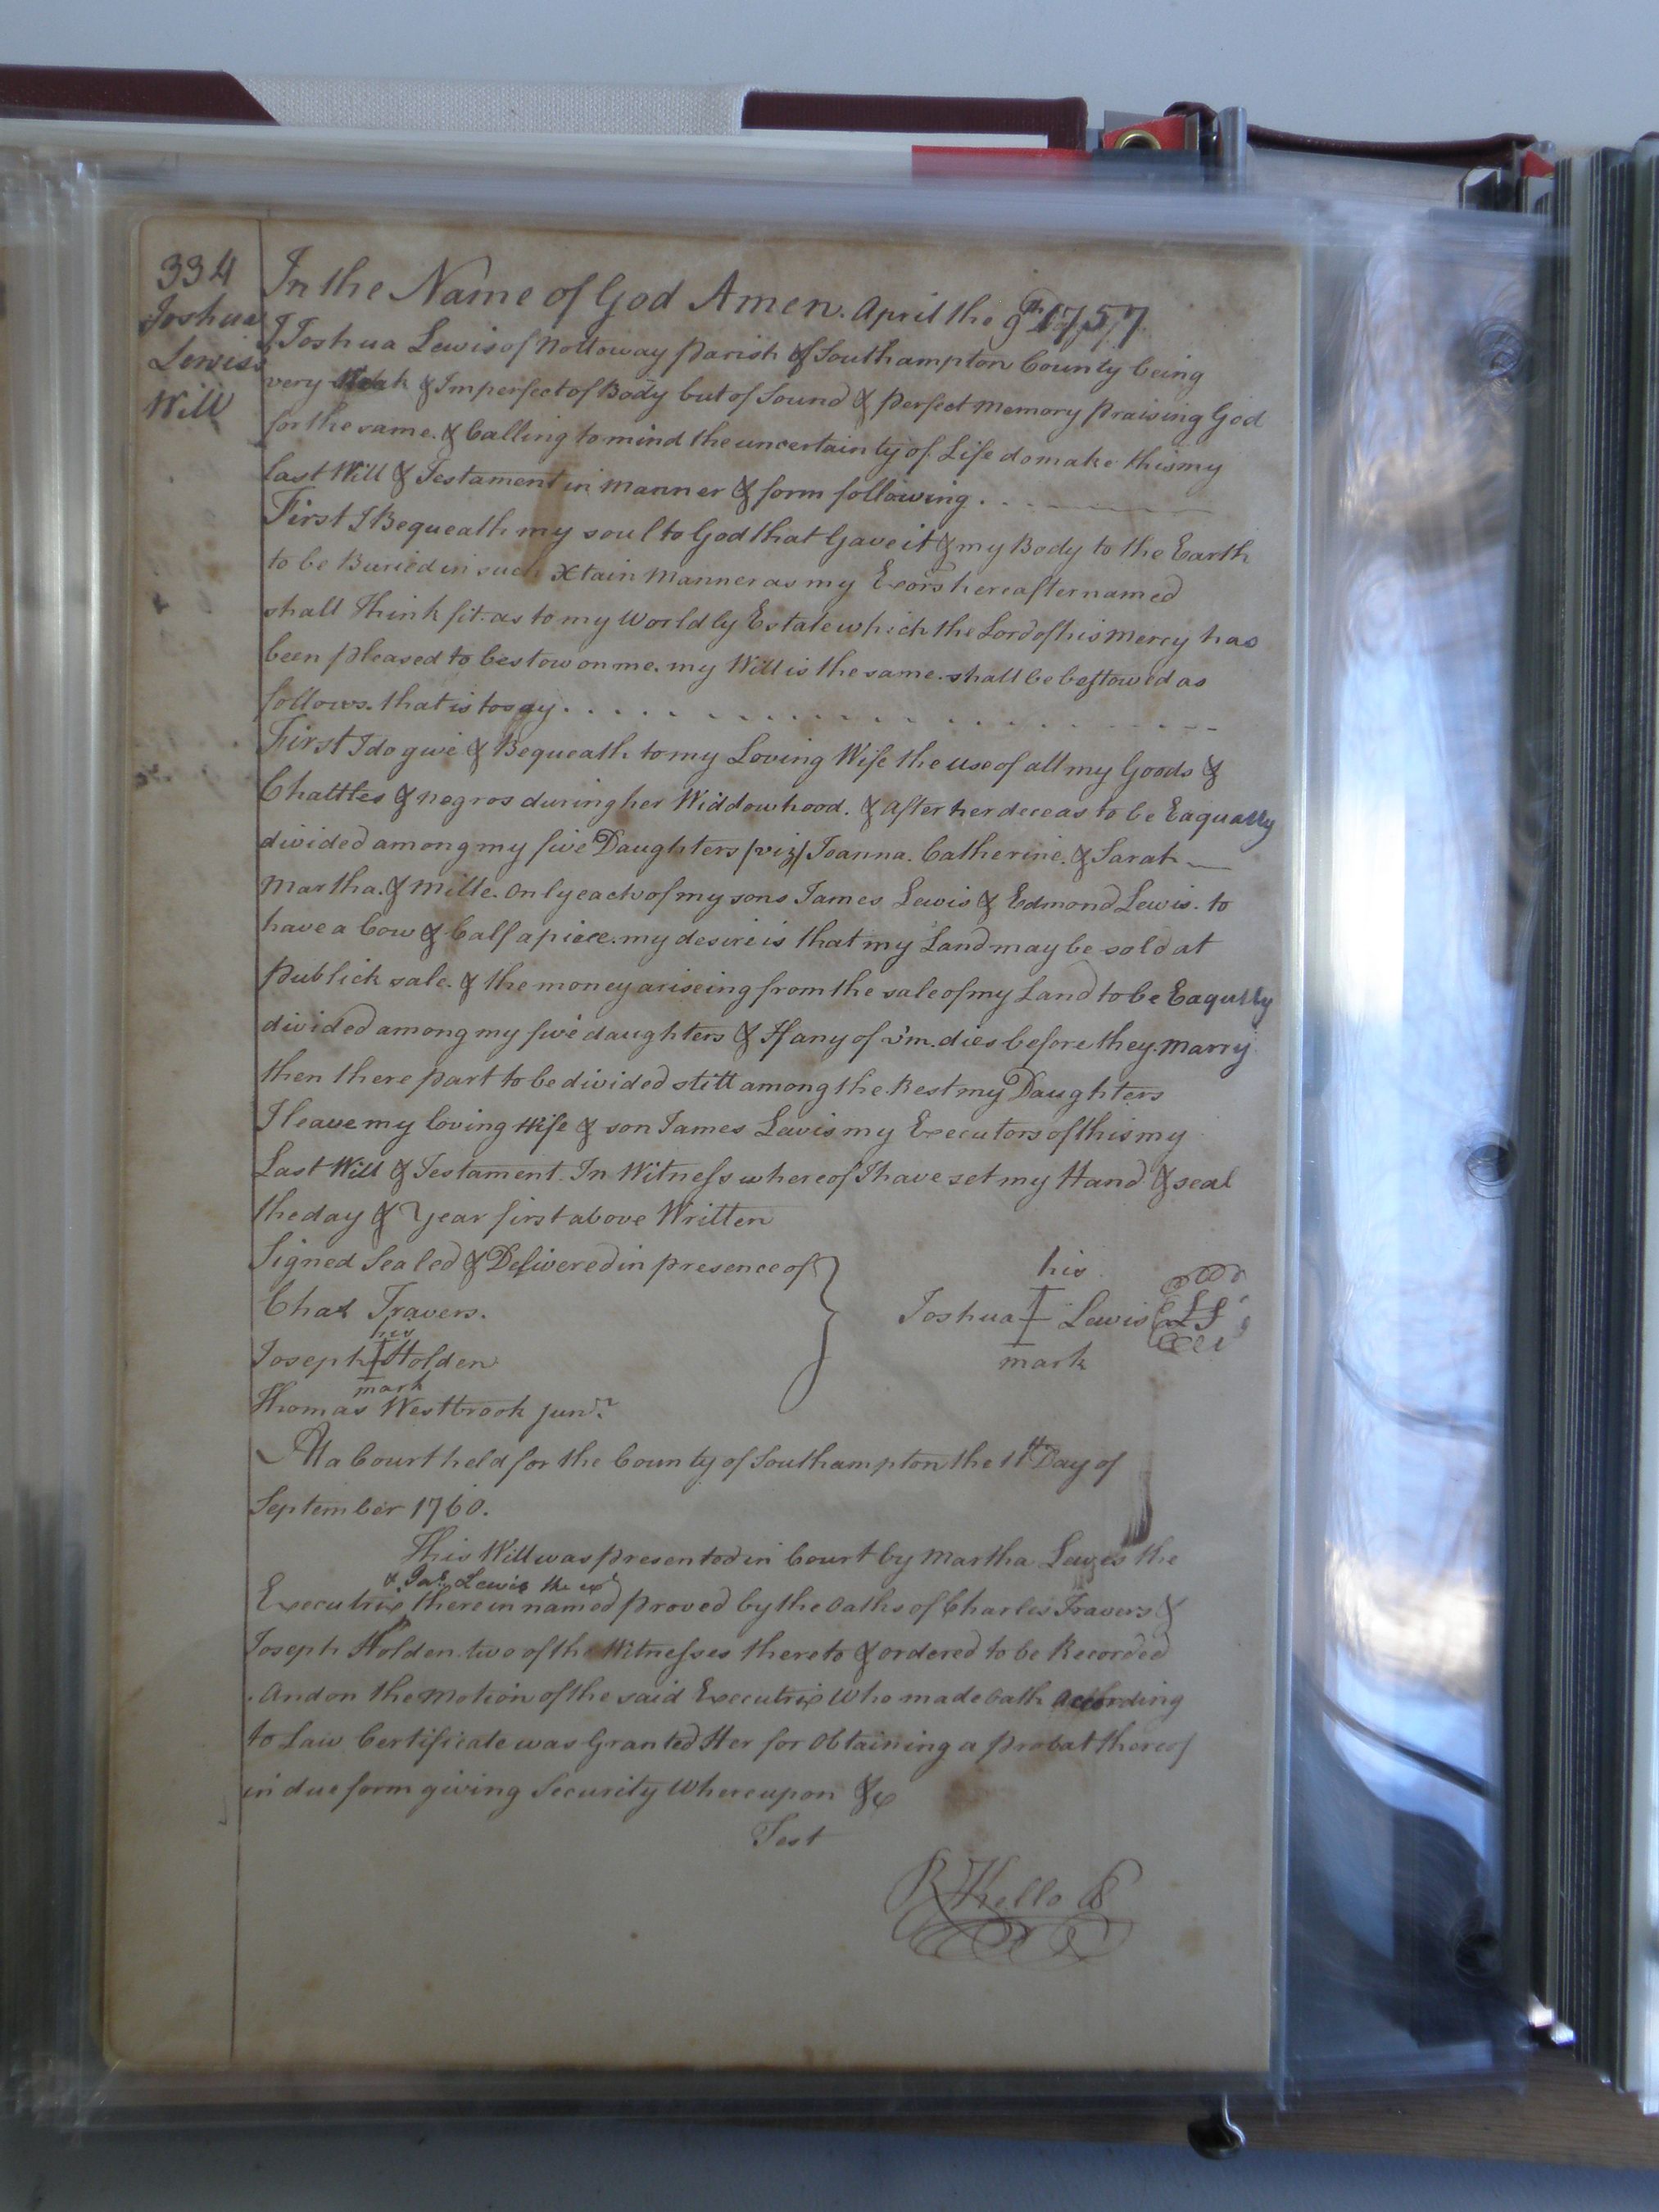 334
Joshua
Lewis's
Will
In the Name of God Amen. April the 9th 1757
I Joshua Lewis of Nottoway parish of Southampton County being
very Weak & Imperfect of Body but of Sound & perfect memory praising God
for the same. & Calling to mind the uncertainty of Life do make this my
last Will & Testament in manner & form following.
First I Bequeath my soul to God that Gave it & my Body to the Earth
to be Buried in such Xtain manner as my Exors hereafter named
shall think fit. as to my Worldly Estate which the Lord of his mercy has
been pleased to bestow on me. my Will is the same. shall be bestowed as
follows. that is to say.
First I do give & Bequeath to my Loving Wife the use of all my Goods &
Chattles & negros during her Widdowhood. & after her deceas to be Eaqually
divided among my five Daughters /viz/ Joanna. Catherine. & Sarah
Martha. & Mille. only each of my sons James Lewis & Edmond Lewis. to
have a Cow & Calf apiece. my desire is that my Land may be sold at
publick sale. & the money ariseing from the sale of my Land to be Eaqully
divided among my five daughters & If any of 'm. dies before they. marry
then there part to be divided still among the Rest my Daughters
I leave my loving Wife & son James Lewis my Executors of this my
Last Will & Testament. In Witness whereof I have set my Hand & seal
the day & Year first above Written
Signed Sealed & Delivered in presence of
Chas Travers.
his
Joseph I Holden
mark
Thomas Westbrook junr.
his
Joshua I Lewis LS
mark
At a Court held for the County of Southampton the 11th Day of
September 1760.
This Will was presented in Court by Martha Lewis the
& Jas. Lewis the exr
Executrix therein named proved by the oaths of Charles Travers &
Joseph Holden two of the Witnesses thereto & ordered to be Recorded
And on the motion of the said Executrix Who made oath according
to Law Certificate was Granted Her for obtaining a probat thereof
in due form giving Security Whereupon &c
Test
R Kello C